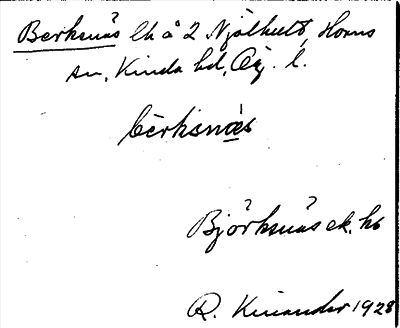 Berksnäs lh å 2 Njälhult, Horns
sn, Kinda hd, Ög. l.
bèrksnæ̀s
Björksnäs ek. kb
R. Kinander 1928